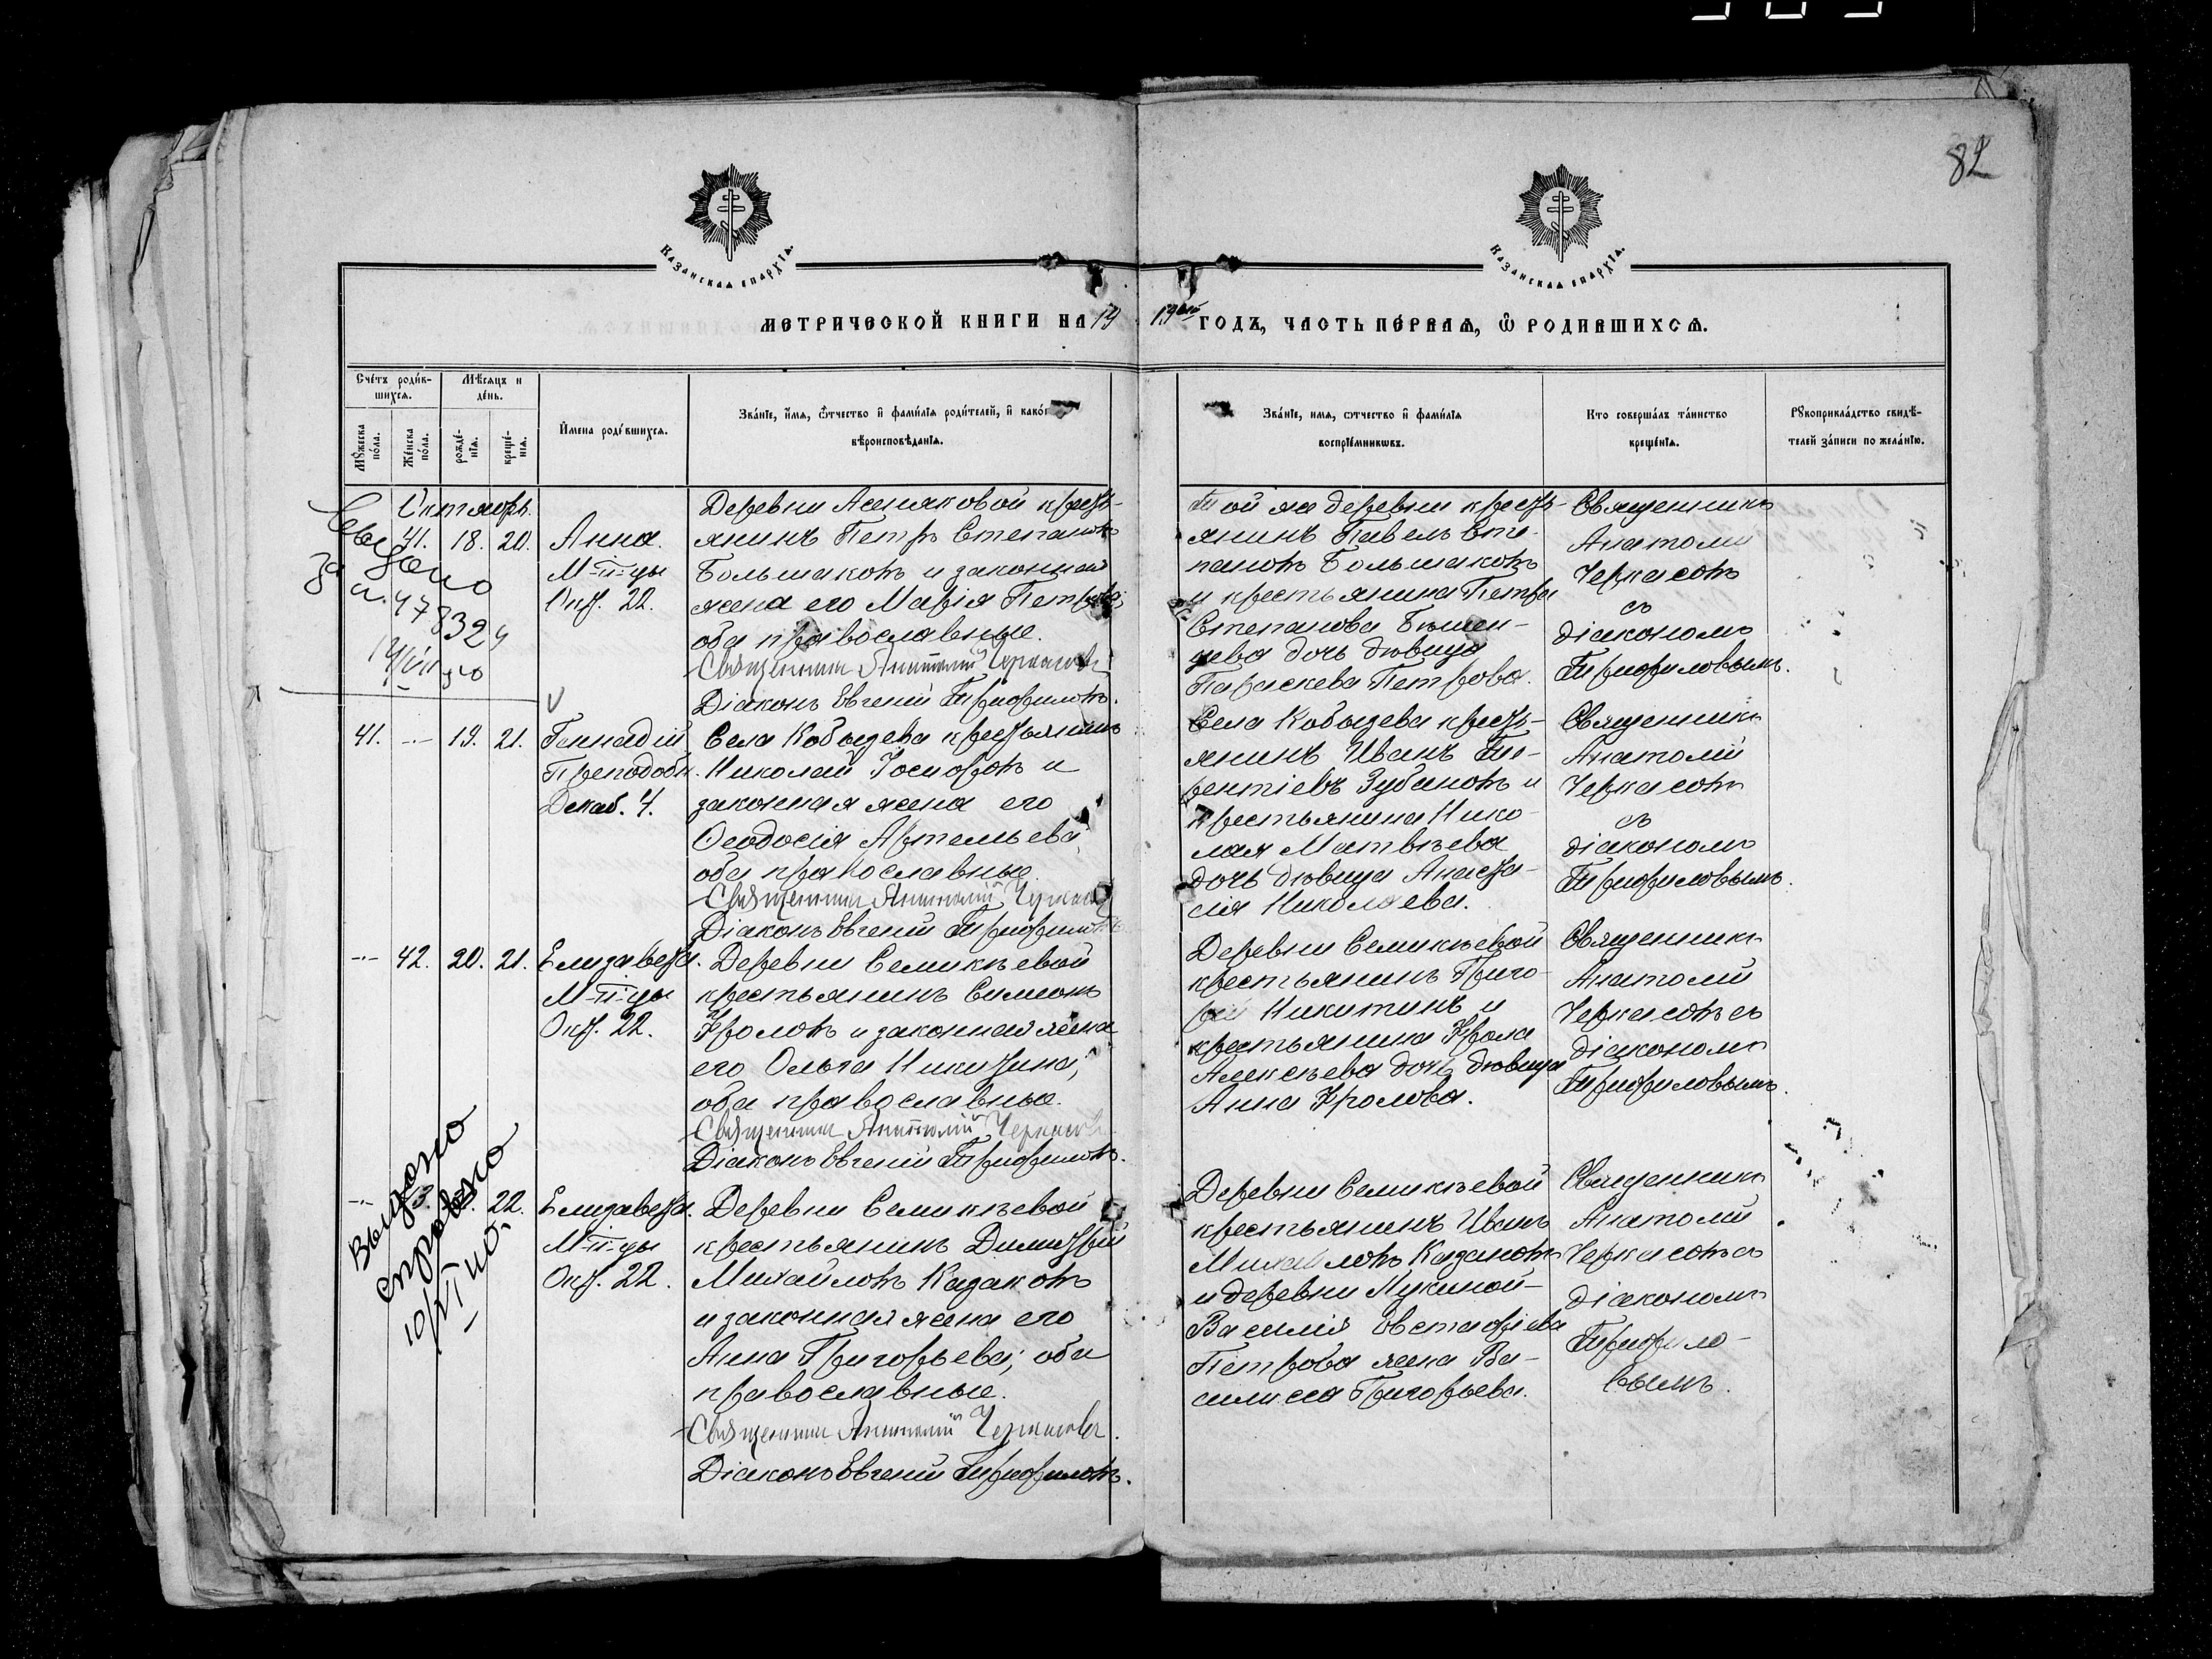 82
Казанская епархїа.
Казанская епархїа.
МЕТРИЧЕСКОЙ КНИГИ НА 19
13ый ГОДЪ, ЧАСТЬ ПЕ́РВАЯ, Ѿ РОДИВШИХСѦ.
Сче́тъ роди́в-
шихсѧ.
Мѣсѧцъ и
де́нь.
Мꙋжеска
по́ла.
Же́нска
по́ла.
рожде́-
нїѧ.
креще́-
нїѧ.
И҆мена роди́вшихсѧ.
Зва́нїе, и҆́мѧ, ѻ҆́тчество и҆ фами́лїѧ роди́телей, и҆ како́г
вѣроисповѣ́данїѧ.
Зва́нїе, имѧ, ѻтчество и҆ фами́лїѧ
воспрїе́мникѡвъ.
Кто соверша́лъ та́инство
креще́нїѧ.
Рꙋкоприкла́дство свидѣ́-
телей за́писи по жела́нїю.
Октябрь.
41. 18. 20.
Анна.
М-ц-цы
Окт. 22.
Деревни Асеняковой кресть-
янинъ Петръ Степановъ
Большаковъ и законная
жена его Марія Петрова;
оба православные.
Священникъ Анатолій Черкасовъ
Діаконъ Евгеній Трифиловъ.
Той же деревни кресть-
янинъ Павелъ Сте-
пановъ Большаковъ
и крестьянина Петра
Степанова
дочь дѣвица
Параскева Петрова.
Священникъ
Анатолій
Черкасовъ
съ
діакономъ
Трифиловымъ.
Выдано
478324
41. -"- 19. 21.
Геннадій
Преподобн.
Декаб. 4.
Села Кобызева крестьянинъ
Николай Іосифовъ и
законная жена его
Ѳеодосія Артемьева,
оба православные.
Священникъ Анатолій Черкасовъ
Діаконъ Евгеній Трифиловъ
Села Кобызева кресть-
янинъ Иванъ Те-
рентіевъ Зубановъ и
крестьянина Нико-
лая Матвѣева
дочь дѣвица Анаста-
сія Николаева.
Священникъ
Анатолій
Черкасовъ
съ
діакономъ
Трифиловымъ.
-"- 42. 20. 21.
Елизавета.
М-ц-цы
Окт. 22.
Деревни Семикѣевой
крестьянинъ Симеонъ
Фроловъ и законная жена
его Ольга Никитина;
оба православные.
Священникъ Анатолій Черкасовъ
Діаконъ Евгеній Трифиловъ.
Деревни Семикѣевой
крестьянинъ Григо-
рій Никитинъ и
крестьянина Фрола
Алексѣева дочь дѣвица
Анна Фролова.
Священникъ
Анатолій
Черкасовъ съ
діакономъ
Трифиловымъ.
Выдано
справка
10/VI 40.
-"- 22.
Елизавета.
М-ц-цы
Окт. 22.
Деревни Семикѣевой
крестьянинъ Димитрій
Михайловъ Казаковъ
и законная жена его
Анна Григорьева; оба
православные.
Священникъ Анатолій Черкасовъ.
Діаконъ Евгеній Трифиловъ.
Деревни Семикѣевой
крестьянинъ Иванъ
Михайловъ Казаковъ
и деревни Мукиной
Василія Евстафіева
Петрова жена Ва-
силисса Григорьева.
Священникъ
Анатолій
Черкасовъ съ
діакономъ
Трифило-
вымъ.